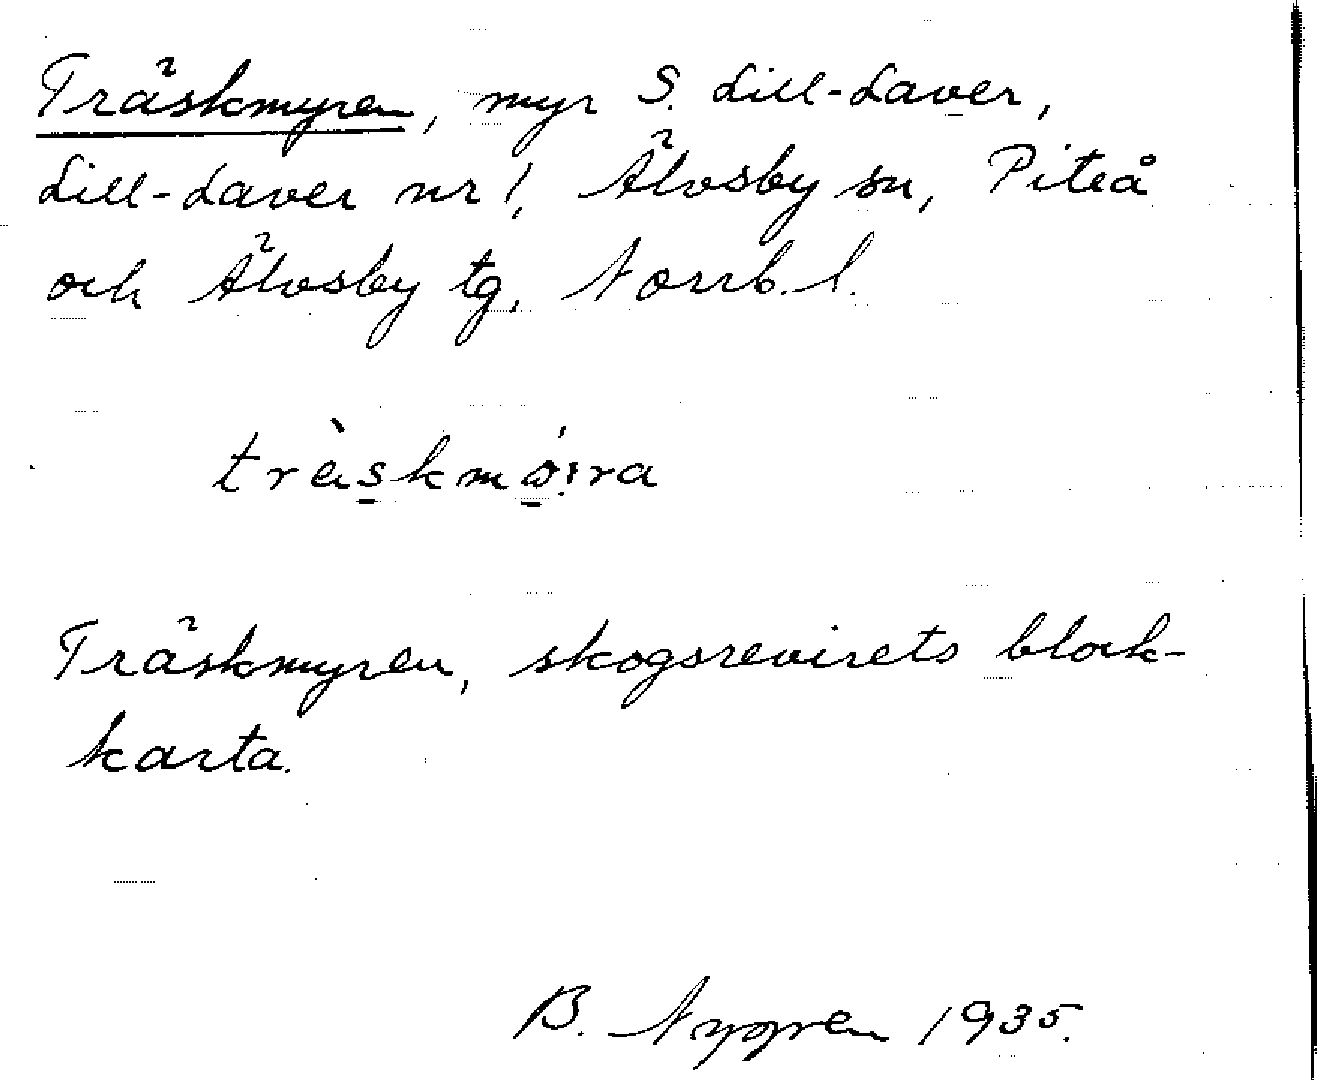 Träskmyren, myr S. Lill-Laver,
Lill-Laver nr 1, Älvsby sn, Piteå
och Älvsby tg, Norrb. l.
träskmö́:ra
Träskmyren, skogsrevirets block-
karta.
B. Nygren 1935.